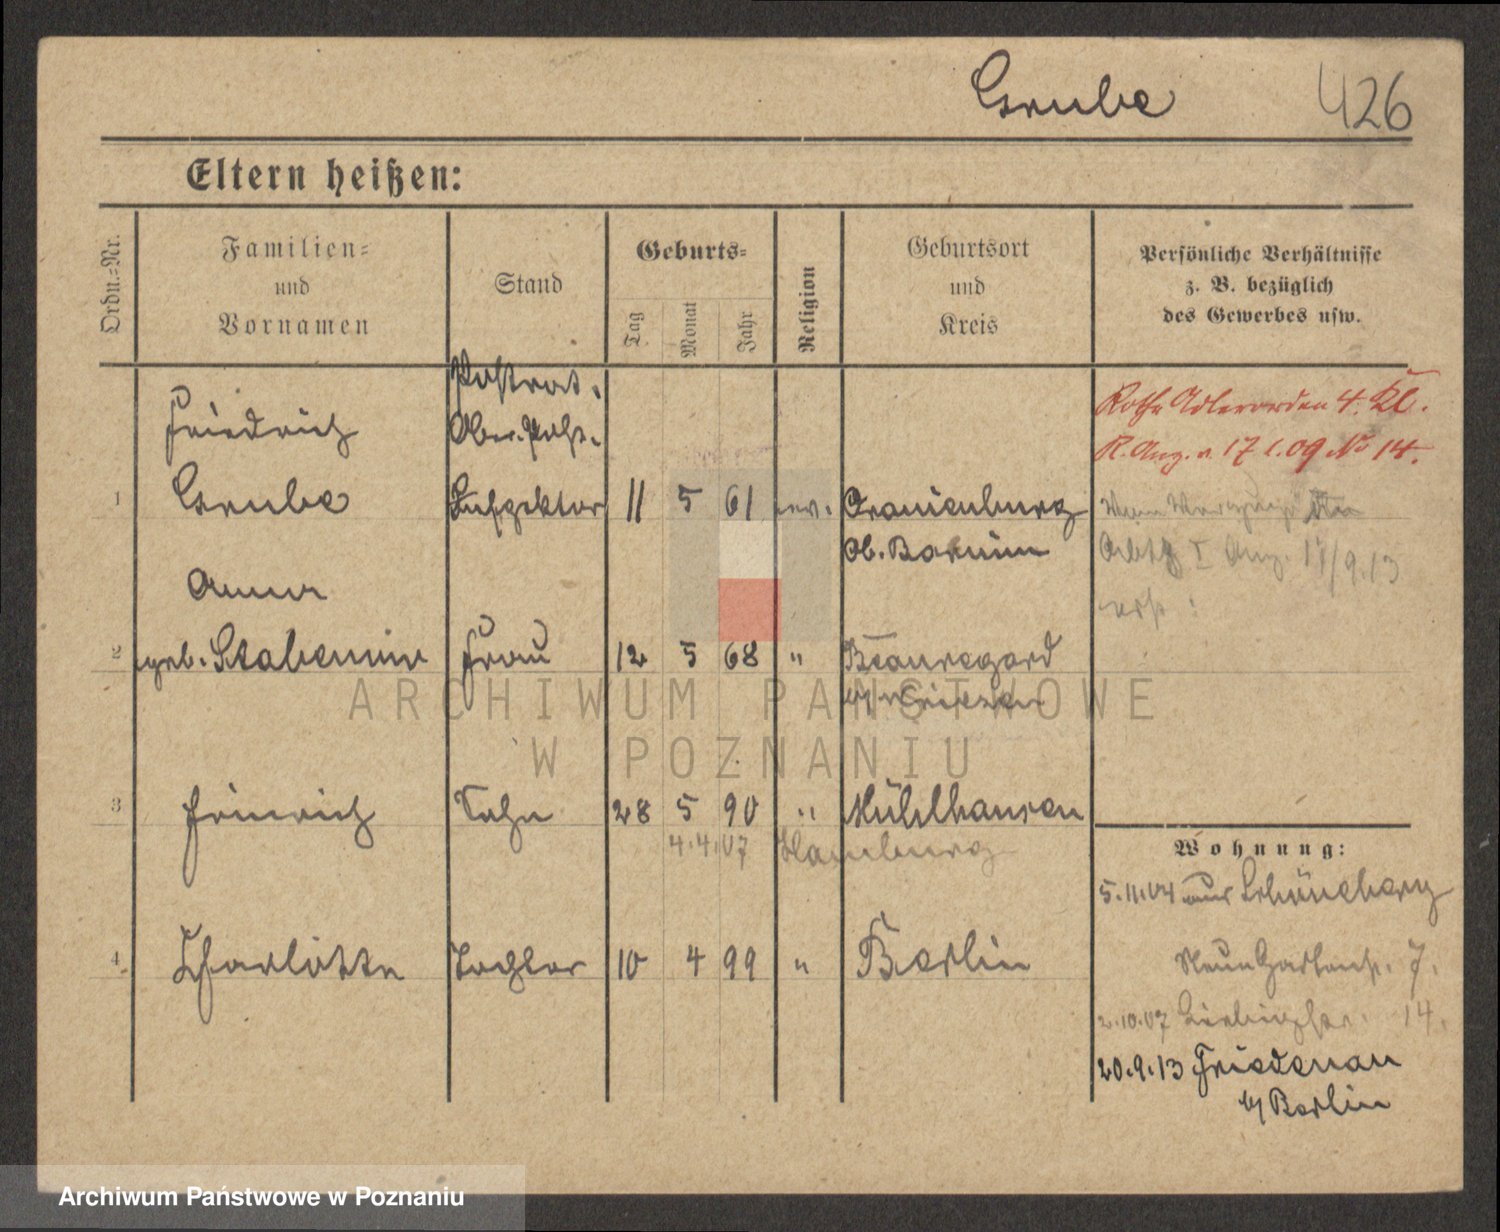 Grube 426
Eltern heißen:
Ordn.-Nr.
Familien-
und
Vornamen
Stand
Geburts-
Tag
Monat
Jahr
Religion
Geburtsort
und
Kreis
Persönliche Verhältnisse
z. B. bezüglich
des Gewerbes usw.
Postrat.
Friedrich Ober-Post-
1 Grube Inspektor 11 5 61 ev. Oranienburg
Ob. Barnim
Anna
2 geb. Stabenow Frau 12 5 68 " Beauregard
b/ Wriezen
3 Heinrich Sohn 28 5 90 " Mühlhausen
4.4.07 Hamburg
4. Charlotte Tochter 10 4 99 " Berlin
Rothe Adlerorden 4. Kl.
R. Anz. v. 17 1.09 No 14.
I Anz. 17/9.13
Wohnung:
5.11.04 aus Schöneberg
Neue Gartenstr. 7.
2.10.07 14.
20.9.13 Friedenau
b/ Berlin
ARCHIWUM PAŃSTWOWE
W POZNANIU
Archiwum Państwowe w Poznaniu